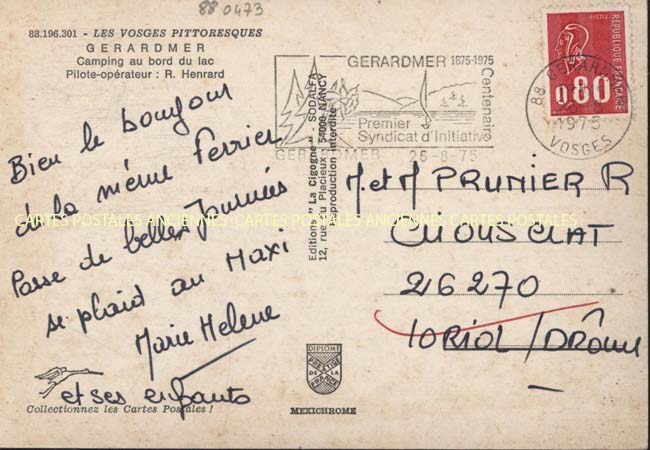 88 0473
88.196.301 - LES VOSGES PITTORESQUES
GERARDMER
Camping au bord du lac
Pilote-opérateur : R. Henrard
Bien le bonjour
de la même Ferrier
Passe de belles Journées
se plaid au Maxi
Marie Helene
et ses enfants
Collectionnez les Cartes Postales !
Editions " La Cigogne " SODALFA
12, rue du Placieux, 54000 NANCY
Reproduction interdite
GERARDMER 1875-1975
Centenaire
Premier
Syndicat d'Initiative
GERARDMER 26-8-75
88 GERARDMER
1975
VOSGES
REPUBLIQUE FRANÇAISE
POSTES
0,80
M et M PRUNIER R
CHOUSCLAT
26270
LORIOL / DRÔME
DIPLOME
PRESTIGE
DE LA
FRANCE
MEXICHROME
CARTES POSTALES ANCIENNES CARTES POSTALES ANCIENNES CARTES POSTALES ANCIENNES